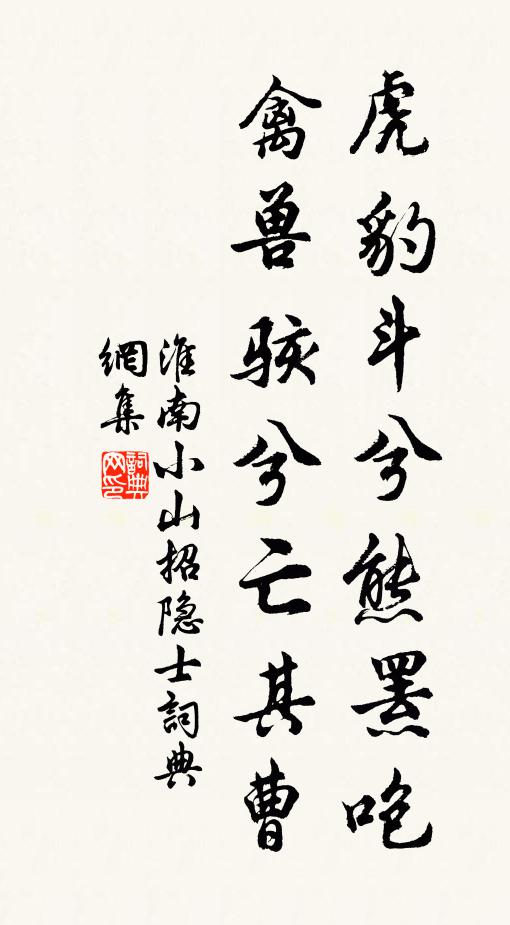 虎豹斗兮熊羆咆
禽兽骇兮亡其曹
淮南小山招隐士詞典
網集
詞典网印